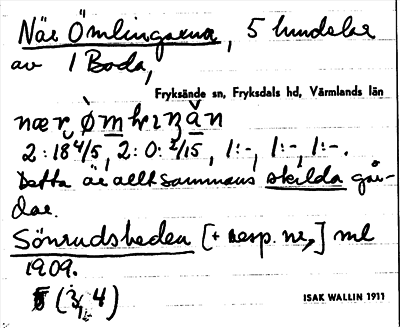 När Ömlingarna, 5 hundelar
av 1 Boda,
Fryksände sn, Fryksdals hd, Värmlands län
2:18 4/5, 2:0:2/15, 1:-, 1:-, 1:-.
Detta är allt sammans skilda går-
dar.
Sönrudsheden [+ resp. nr,] ml
1909.
(3/1 4)
ISAK WALLIN 1911